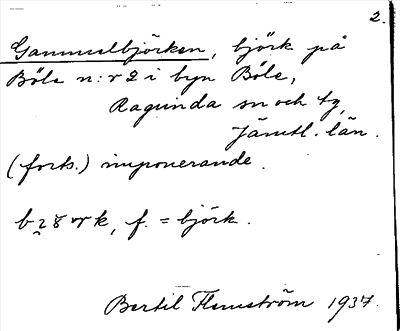 2.
Gammelbjörken, björk på
Böle n:r 2 i byn Böle,
Ragunda sn och tg,
Jämtl. län.
(forts.) imponerande.
f. = björk.
Bertil Flemström 1937.